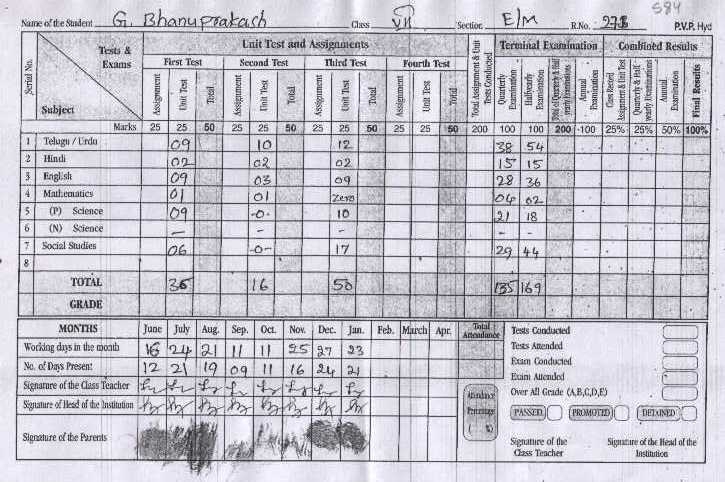 584
Name of the Student G. Bhanuprakash Class VII Section E/M R.No. 273 P.V.P. Hyd
Serial No. Tests & Exams Subject Unit Test and Assignments Total Assignment & Unit Tests Conducted Terminal Examination Combined Results
First Test Second Test Third Test Fourth Test
Assignment Unit Test Total Assignment Unit Test Total Assignment Unit Test Total Assignment Unit Test Total Quarterly Examination Halfyearly Examination Total of Quarterly & Half yearly Examinations Annual Examination Class Record Assignment & Unit Test Quarterly & Half yearly Examinations Annual Examination Final Results
Marks 25 25 50 25 25 50 25 25 50 25 25 50 200 100 100 200 -100 25% 25% 50% 100%
1 Telugu / Urdu 09 10 12 38 54
2 Hindi 02 02 02 15 15
3 English 09 03 09 28 36
4 Mathematics 01 01 zero 04 02
5 (P) Science 09 -0- 10 21 18
6 (N) Science - - - - -
7 Social Studies 06 -0- 17 29 44
8
TOTAL 36 16 50 135 169
GRADE
MONTHS June July Aug. Sep. Oct. Nov. Dec. Jan. Feb. March Apr. Total Attendance
Working days in the month 16 24 21 11 11 25 27 23
No. of Days Present 12 21 19 09 11 16 24 21
Signature of the Class Teacher
Signature of Head of the Institution
Signature of the Parents
Attendance Percentage ( %)
Tests Conducted
Tests Attended
Exam Conducted
Exam Attended
Over All Grade (A,B,C,D,E)
PASSED PROMOTED DETAINED
Signature of the Class Teacher
Signature of the Head of the Institution